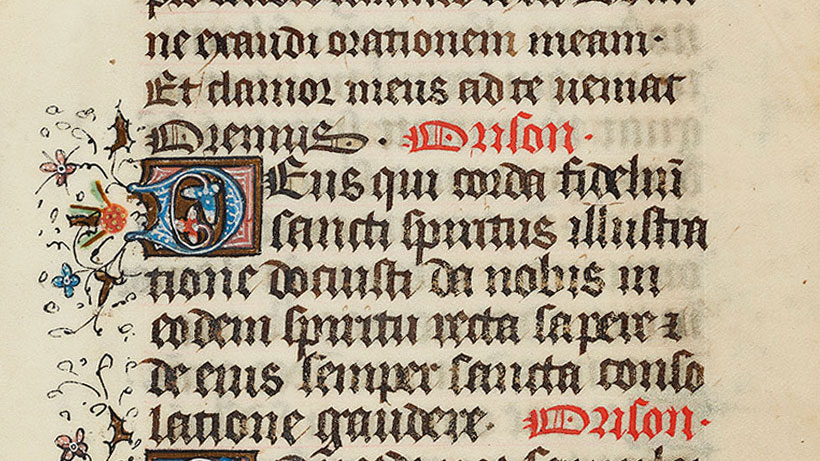 ne exaudi orationem meam.
Et clamor meus ad te veniat
Oremus. Orison.
Deus qui corda fideliũ
sancti spiritus illustra
tione docuisti da nobis in
eodem spiritu recta sapere ⁊
de eius semper sancta conso
latione gaudere. Orison.